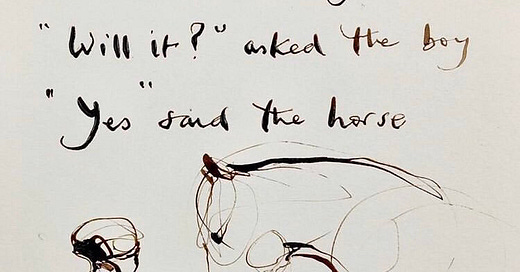 "Will it?" asked the boy
"Yes" said the horse